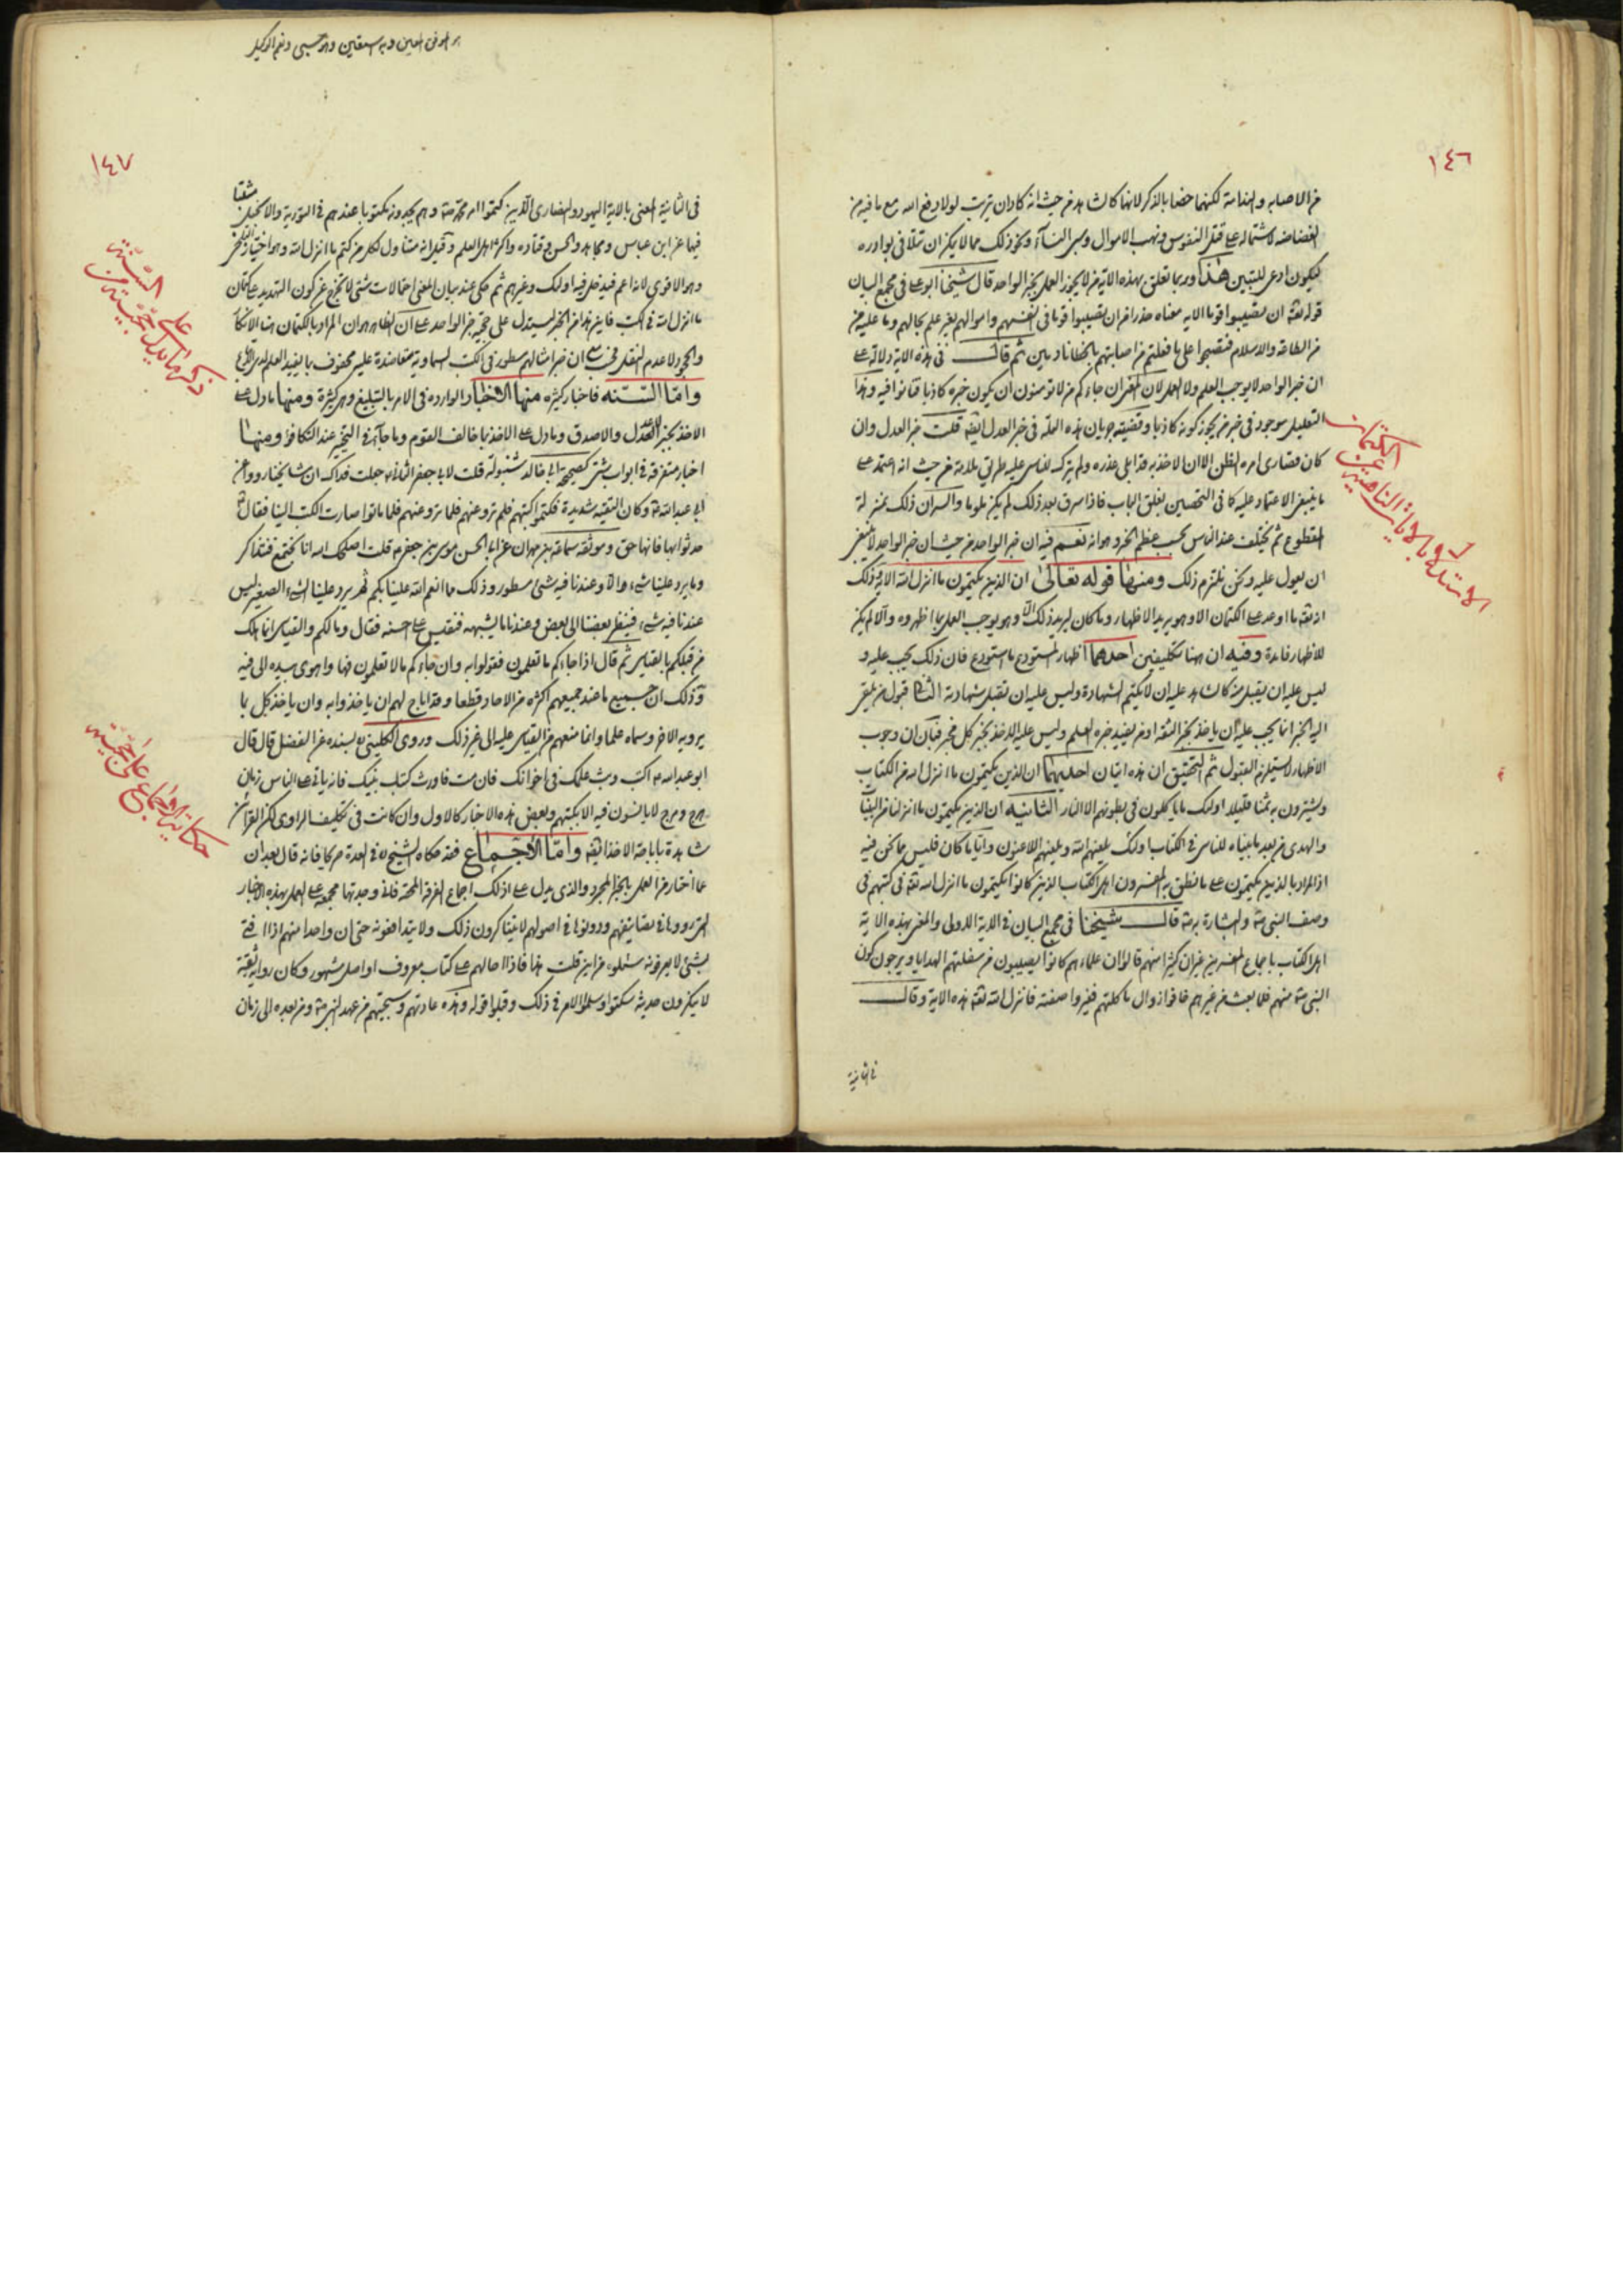 ١٤٦
من الاصابه والندامة لكنهما خصا بالذكر لانها كالشاهد من حيث انه كاد ان يترتب لولا دفع الله مع ما فيه من
الفضاضه لاشتماله على قتل النفوس ونهب الاموال وسبى النسآء ونحو ذلك مما لا يمكن ان يتلافى بوادره
ليكون ادعى للتبين هذا وربما تعلق بهذه الآية من لا يجوز العمل بخبر الواحد قال شيخنا ابو على فى مجمع البيان
قوله تعه ان تصيبوا قوما الايه معناه حذرا من ان تصيبوا قوما فى انفسهم واموالهم بغير علم بحالهم وما عليه من
من الطاعه والاسلام فتصبحوا على ما فعلتم من اصابتهم بالخطا نادمين ثم قال فى هذه الاية دلالة على
ان خبر الواحد لا يوجب العلم ولا العمل لان المعنى ان جاءكم من لا تومنون ان يكون خبره كاذبا فتوقفوا فيه وهذا
التعليل موجود فى خبر من يجوز كونه كاذبا وقضيته جريان هذه العلة فى خبر العدل ايضه قلت خبر العدل وان
كان قصارى امره الظن الا ان الاخذ به قد ابلى عذره ولم يتركه للناس عليه طريق ملامة من حيث انه اعتمد على
ما ينبغى الاعتماد عليه كما فى التحصين بغلق الباب فاذا سرق بعد ذلك لم يكن ملوما والسر ان ذلك بمنزلة
المقطوع ثم يختلف عند الناس بحسب عظم الخبر وهوانه نعم فيه ان خبر الواحد من حيث ان خبر الواحد لا ينبغى
ان يعول عليه ونحن نلتزم ذلك ومنها قوله تعالى ان الذين يكتمون ما انزل الله الاية وذلك
انه تعه ما اوعد على الكتمان الا وهو يريد الاظهار وما كان ليريد ذلك الا وهو يوجب العمل بما اظهروه والا لم يكن
للاظهار فايدة وفيه ان هنا تكليفين احدهما اظهار المستودع ما استودع فان ذلك يجب عليه و
ليس عليه ان يقبل منه كالشاهد عليه ان لا يكتم الشهادة وليس عليه ان تقبل شهادته الثانى قبول من يلقى
اليه الخبر انما يجب عليه ان ياخذ بخبر الثقه او من يفيد خبره العلم وليس عليه الاخذ بخبر كل مخبر فبان ان وجوب
الاظهار لا يستلزم القبول ثم التحقيق ان هذه ايتان احديهما ان الذين يكتمون ما انزل الله من الكتاب
ويشترون به ثمنا قليلا اولئك ما ياكلون فى بطونهم الا النار الثانيه ان الذين يكتمون ما انزلنا من البينات
والهدى من بعد ما بيناه للناس فى الكتاب اولئك يلعنهم الله ويلعنهم اللاعنون وايا ما كان فليس مما نحن فيه
اذ المراد بالذين يكتمون على ما نطق به المفسرون اهل الكتاب الذين كانوا يكتمون ما انزل الله تعه فى كتبهم فى
وصف النبى ص والبشارة به ص قال شيخنا فى مجمع البيان فى الاية الاولى والمعنى بهذه الاية
اهل الكتاب باجماع المفسرين غير ان كثيرا منهم قالوا ان علماءهم كانوا يصيبون من سفلتهم الهدايا ويرجون كون
النبى ص منهم فلما بعث من غيرهم خافوا زوال ماكلتهم فغيروا صفته فانزل الله تعه هذه الاية وقال
فى الثانية
الاستدلال بالايات الناهية عن الكتمان
هو الموفق المعين وبه استعين وهو حسبى ونعم الوكيل
١٤٧
فى الثانية المعنى بالاية اليهود والنصارى الذين كتموا امر محمد ص وهم يجدونه مكتوبا عندهم فى التورية والانجيل مثبتا
فيهما عن ابن عباس ومجاهد والحسن وقتاده واكثر اهل العلم وقيل انه متناول لكل من كتم ما انزل الله وهو اختيار البلخى
وهو الاقوى لانه اعم فيدخل فيه اولئك وغيرهم ثم حكى عند بيان المعنى احتمالات شتى لا تخرج عن كون التهديد على كتمان
ما انزل الله فى الكتب فاين هذا من الخبر ليستدل على حجية خبر الواحد على ان الظاهر ان المراد بالكتمان هنا الانكار
والجحود لا عدم النقل
واما السنه فاخبار كثيره منها الاخبار الوارده فى الامر بالتبليغ وهى كثيرة ومنها ما دل على
الاخذ بخبر العدل والاصدق وما دل على الاخذ بما خالف القوم وما جآء فى التخيير عند التكافؤ ومنها
اخبار متفرقه فى ابواب شتى كصحيحة ابى خالد شنبولة قلت لابى جعفر الثانى ع جعلت فداك ان مشايخنا رووا عن
ابى عبد الله ع وكان التقيه شديدة فكتموا كتبهم فلم ترو عنهم فلما ماتوا صارت الكتب الينا فقال ع
حدثوا بها فانها حق وموثقه سماعة بن مهران عن ابى الحسن موسى بن جعفر ع قلت اصلحك الله انا نجتمع فنتذاكر
وما يرد علينا شىء والا وعندنا فيه شىء مسطور وذلك ما انعم الله علينا بكم ثم يرد علينا الشىء الصغير ليس
عندنا فيه شىء فينظر بعضنا الى بعض وعندنا ما يشبهه فنقيس على احسنه فقال وما لكم والقياس انما هلك
من قبلكم بالقياس ثم قال اذا جاءكم ما تعلمون فقولوا به وان جاءكم ما لا تعلمون فها واهوى بيده الى فيه
وذلك ان جميع ما عند جميعهم اكثره من الاحاد قطعا وقد اباح لهم ان ياخذوا به وان ياخذ كل بما
يرويه الاخر وسماه علما وانما منعهم من القياس عليه الى غير ذلك وروى الكلينى بسنده عن المفضل قال قال
ابو عبد الله ع اكتب وبث علمك فى اخوانك فان مت فاورث كتبك بنيك فانه ياتى على الناس زمان
هرج ومرج لا يانسون فيه الا بكتبهم وبعض هذه الاخبار كالاول وان كانت فى تكليف الراوى لكن القرآئن
شاهدة باباحة الاخذ ايضه واما الاجماع فقد حكاه الشيخ ره فى العدة صريحا فانه قال بعد ان
ما اختار من العمل بالخبر المجرد والذى يدل على ذلك اجماع الفرقة المحقة فانى وجدتها مجمعه على العمل بهذه الاخبار
التى رووها فى تصانيفهم ودونوها فى اصولهم لا يتناكرون ذلك ولا يتدافعونه حتى ان واحدا منهم اذا افتى
بشئ لا يعرفونه سئلوه من اين قلت هذا فاذا احالهم على كتاب معروف او اصل مشهور وكان راويه ثقة
لا ينكرون حديثه سكتوا وسلموا الامر فى ذلك وقبلوا قوله وهذه عادتهم وسجيتهم من عهد النبى ص ومن بعده الى زمان
ذكر ما يدل على حجيته من السنة
حكاية الاجماع على حجيته